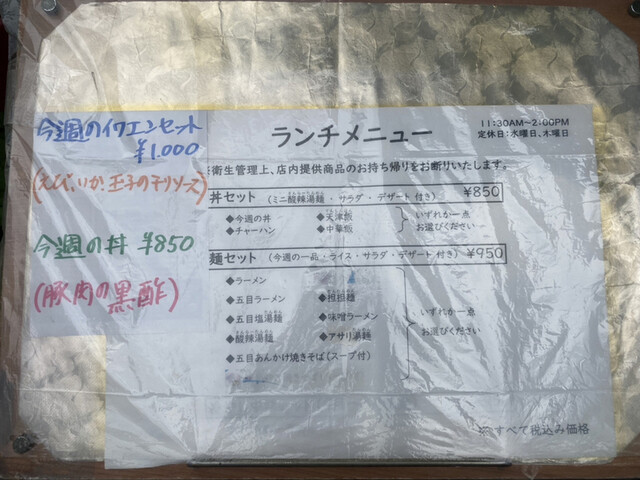 今週のイワエンセット
¥1.000
(えび、いか、玉子のチリソース)
今週の丼 ¥850
(豚肉の黒酢)
11:30AM～2:00PM
定休日:水曜日、木曜日
ランチメニュー
※衛生管理上、店内提供商品のお持ち帰りをお断りいたします。
丼セット (ミニ酸辣湯麺・サラダ・デザート 付き) ¥850
◆今週の丼 ◆天津飯
◆チャーハン ◆中華飯
いずれか一点
お選びください
麺セット (今週の一品・ライス・サラダ・デザート 付き) ¥950
◆ラーメン
◆五目ラーメン ◆担担麺
◆五目塩湯麺 ◆味噌ラーメン
◆酸辣湯麺 ◆アサリ湯麺
◆五目あんかけ焼きそば(スープ付)
いずれか一点
お選びください
※すべて税込み価格